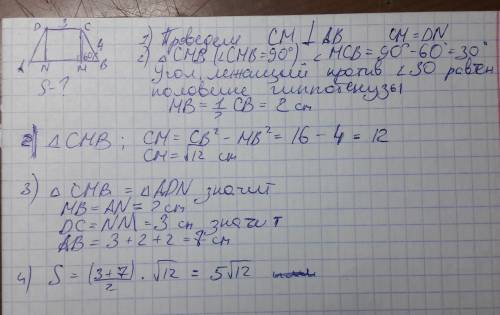 D 3 C
4
60°
A N M B
S-?
1) Проведем CM ⊥ AB CM = DN
2) △ CMB (∠CMB = 90°) ∠MCB = 90° - 60° = 30°
Угол лежащий против ∠30 равен
половине гиппотенузы
MB = 1/2 CB = 2 cm
2) △ CMB; CM = CB² - MB² = 16 - 4 = 12
CM = √12 cm
3) △ CMB = △ ADN значит
MB = AN = 2 cm
DC = NM = 3 cm значит
AB = 3 + 2 + 2 = 7 cm
4) S = (3+7)/2 · √12 = 5√12